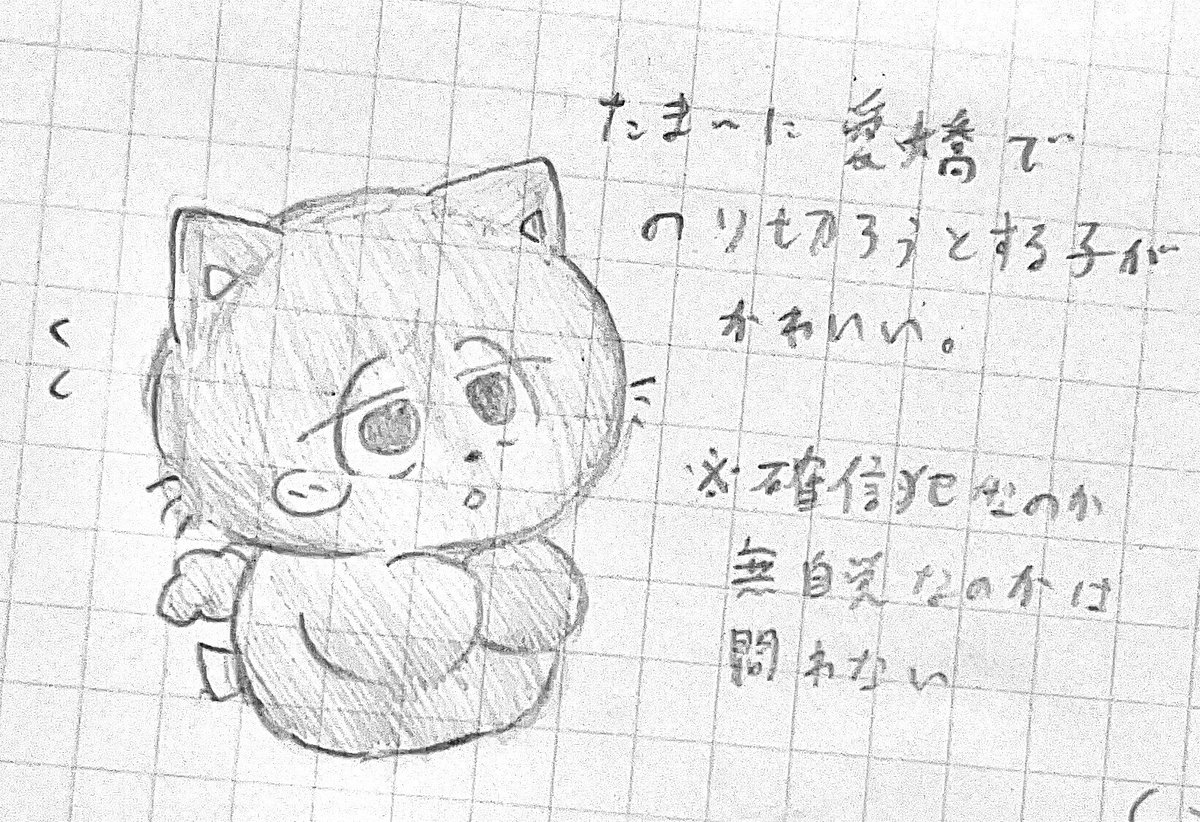 たま～に愛嬌で
のり切ろうとする子が
かわいい。
※確信犯なのか
無自覚なのかは
問わない